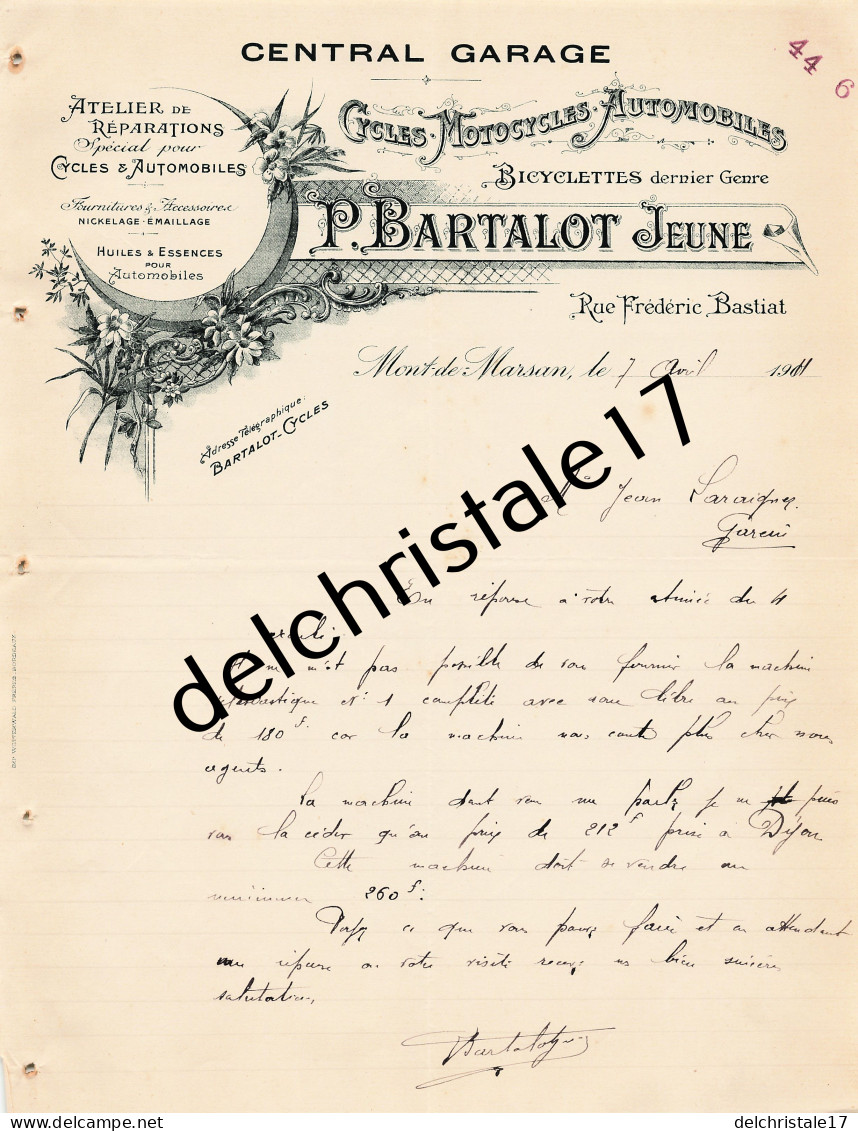 CENTRAL GARAGE
44 6
ATELIER DE
RÉPARATIONS
Spécial pour
CYCLES & AUTOMOBILES
Fournitures & Accessoires
NICKELAGE - ÉMAILLAGE
HUILES & ESSENCES
POUR
Automobiles
CYCLES - MOTOCYCLES - AUTOMOBILES
BICYCLETTES dernier Genre
P. BARTALOT JEUNE
Rue Frédéric Bastiat
Mont-de-Marsan, le 7 Avril 1911
Adresse Télégraphique:
BARTALOT-CYCLES
Jean Laraignez
Garein
En réponse à votre du 4
Il m'est pas possible de vous fournir la machine
N° 1 complète avec roue libre au prix
de 180 f. car la machine nous coute plus cher nous
agents.
La machine dont vous me parlez je ne puis
vous la céder qu'au prix de 212 f prise à Dijon
Cette machine doit se vendre au
minimum 260 f.
Voyez ce que vous pouvez faire et en attendant
une réponse ou votre visite recevez mes bien sincères
salutations
Bartalot
delchristale17
delchristale17
delcampe.net